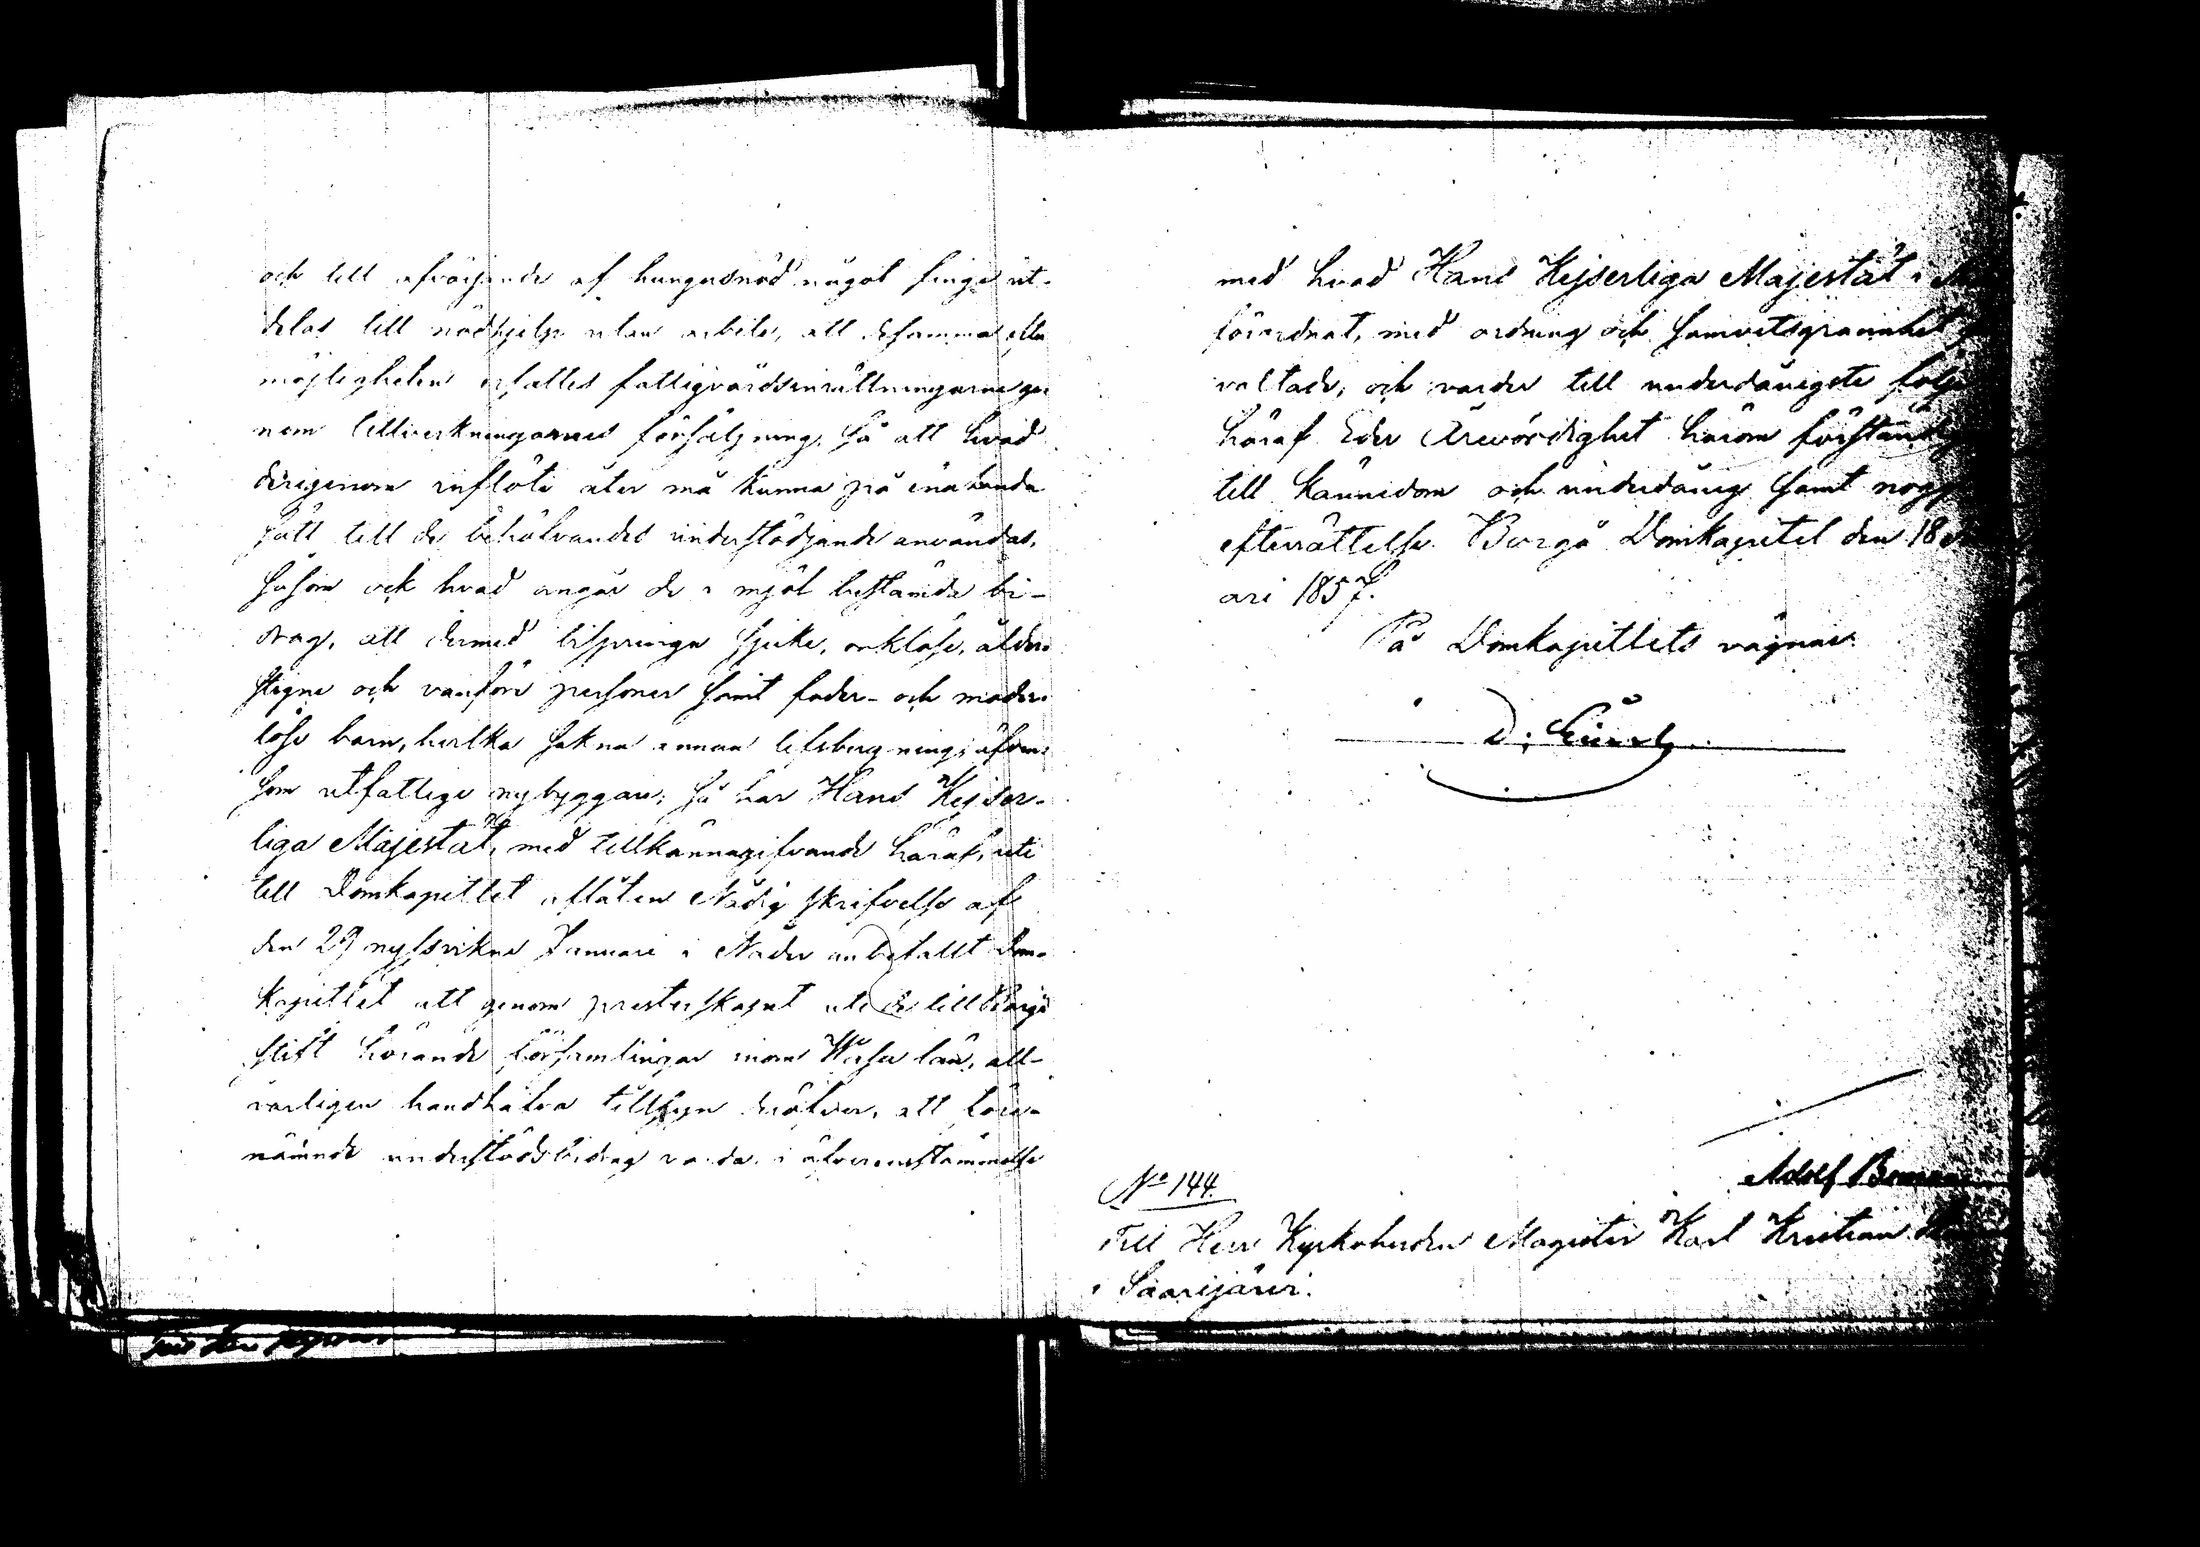 och till afvärjande af hungersnöd något finge ut-
delas till nödhjelp utan arbete, att desamma efter
möjligheten ersattes fattigvårdsinrättningarne ge-
nom tillverkningarnes försäljning, så att hvad
derigenom inflöte åter må kunna på enahanda
sätt till de behöfvandes understödjande användas,
såsom ock hvad angår de i mjöl bestämda bi-
drag, att dermed bispringa sjuke, orklöse, ålder-
stigne och vanföre personer samt fader- och moder-
löse barn, hvilka sakna annan lifsbergning, äfven-
som utfattige nybyggare; så har Hans Kejser-
liga Majestät, med tillkännagifvande häraf, uti
till Domkapitlet aflåten Nådig skrifvelse af
den 29 nystvikne Januari i Nåder anbefallt Dom-
kapitlet att genom presterskapet uti de till Borgå
stift hörande församlingar inom Wasa län, all-
varligen handhafva tillsyn deröfver, att före-
nämnde understödsbidrag varda i öfverensstämmelse
med hvad Hans Kejserliga Majestät i
förordnat, med ordning och samvetsgrannhet
valtade; och varder till underdånigste följe
häraf Eder Ärevördighet härom förständig
till kännedom och underdånig samt nogg
efterrättelse. Borgå Domkapitel den 18
ari 1857.
På Domkapitlets vägnar.
Adolf Boman
No 144.
Till Herr Kyrkoherden Magister Karl Kristian
i Saarijärvi.